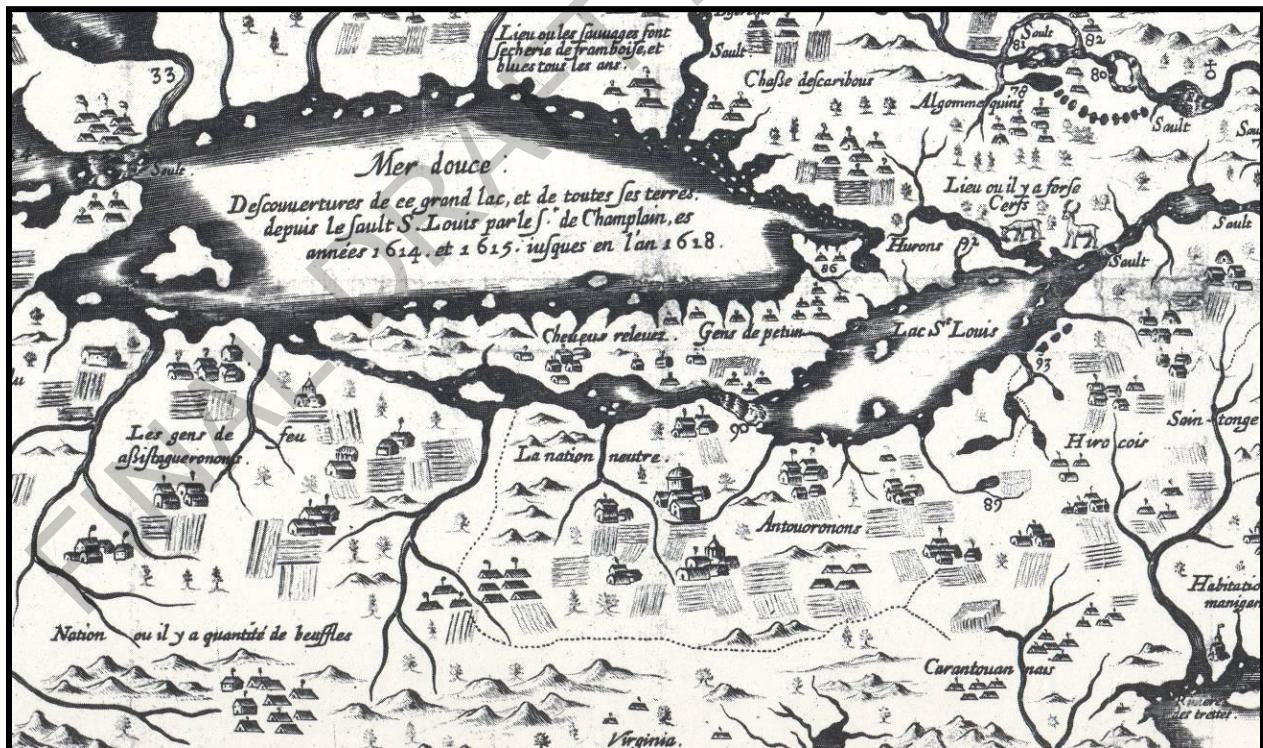 Lieu ou les sauvages font
secherie de framboise, et
blues tous les ans.
33
Sault
Sault
Chasse descaribous
Sault
81
82
80
78
Algommequins
Sault
Mer douce :
Descouuertures de ce grand lac, et de toutes ses terres.
depuis le sault S. Louis par le Sr. de Champlain, es
années 1614. et 1615. iusques en l'an 1618.
Lieu ou il y a forse
Cerfs
Sault
Hurons
92
86
Sault
Cheueus releuez.
Gens de petun
Lac St. Louis
93
90
Les gens de feu
assistagueronons.
La nation neutre.
Hirocois
Sain-tonge
89
Antouoronons
Habitatio
manigan
Nation ou il y a quantité de beuffles
Carantouannais
Riuiere
des trettes.
Virginia.
FINAL DRAFT